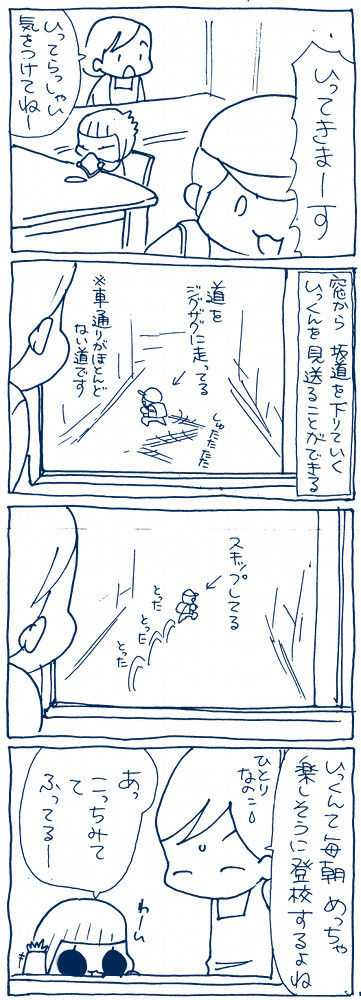 いってきまーす
いってらっしゃい
気をつけてねー
窓から 坂道を下りていく
いっくんを見送ることができる
道を
ジグザグに走ってる
しゅたたたた
※車通りがほとんど
ない道です
スキップしてる
とった
とった
とった
いっくんて毎朝 めっちゃ
楽しそうに登校するよね
ひとり
なのに
あっ
こっちみて
て
ふってるー
わーい